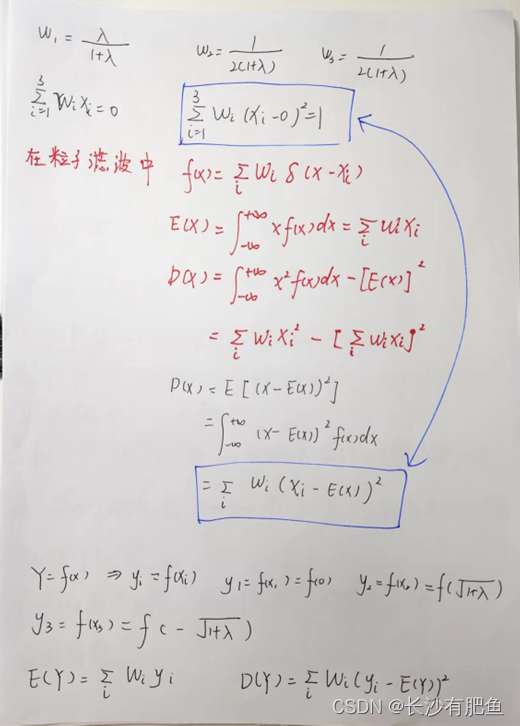 W₁ = λ/(1+λ)  W₂ = 1/(2(1+λ))  W₃ = 1/(2(1+λ))
∑_{i=1}^{3} Wᵢ Xᵢ = 0  ∑_{i=1}^{3} Wᵢ (Xᵢ - 0)² = 1
在粒子滤波中  f(x) = ∑_i Wᵢ δ(x - xᵢ)
E(X) = ∫_{-∞}^{+∞} x f(x) dx = ∑_i Wᵢ Xᵢ
D(X) = ∫_{-∞}^{+∞} x² f(x) dx - [E(X)]²
= ∑_i Wᵢ Xᵢ² - [∑_i Wᵢ Xᵢ]²
D(X) = E[(X - E(X))²]
= ∫_{-∞}^{+∞} (x - E(X))² f(x) dx
= ∑_i Wᵢ (Xᵢ - E(X))²
Y = f(x) ⇒ yᵢ = f(xᵢ)  y₁ = f(x₁) = f(0)  y₂ = f(x₂) = f(√(1+λ))
y₃ = f(x₃) = f(-√(1+λ))
E(Y) = ∑_i Wᵢ yᵢ  D(Y) = ∑_i Wᵢ (yᵢ - E(Y))²
CSDN @长沙有肥鱼